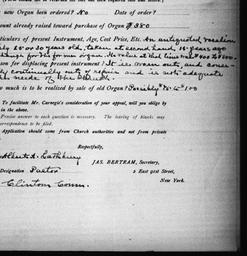 new Organ been ordered? No Date of order?
amount already raised toward purchase of Organ $350
Particulars of present Instrument, Age, Cost Price, Etc. An antiquated
50 years old, taken at second hand,
years ago
for displacing present instrument? It is worn out, and
continually out of repair and is not adequate
needs of the Church
much is to be realized by sale of old Organ? Possibly 75 to 100
To facilitate Mr. Carnegie's consideration of your appeal, will you oblige by
in the above.
Precise answer to each question is necessary. The leaving of blanks may
correspondence to be filed.
Application should come from Church authorities and not from private
Respectfully,
Albert A. Lathbury
JAS. BERTRAM, Secretary,
Designation Pastor
2 East 91st Street,
New York.
Clinton Conn.